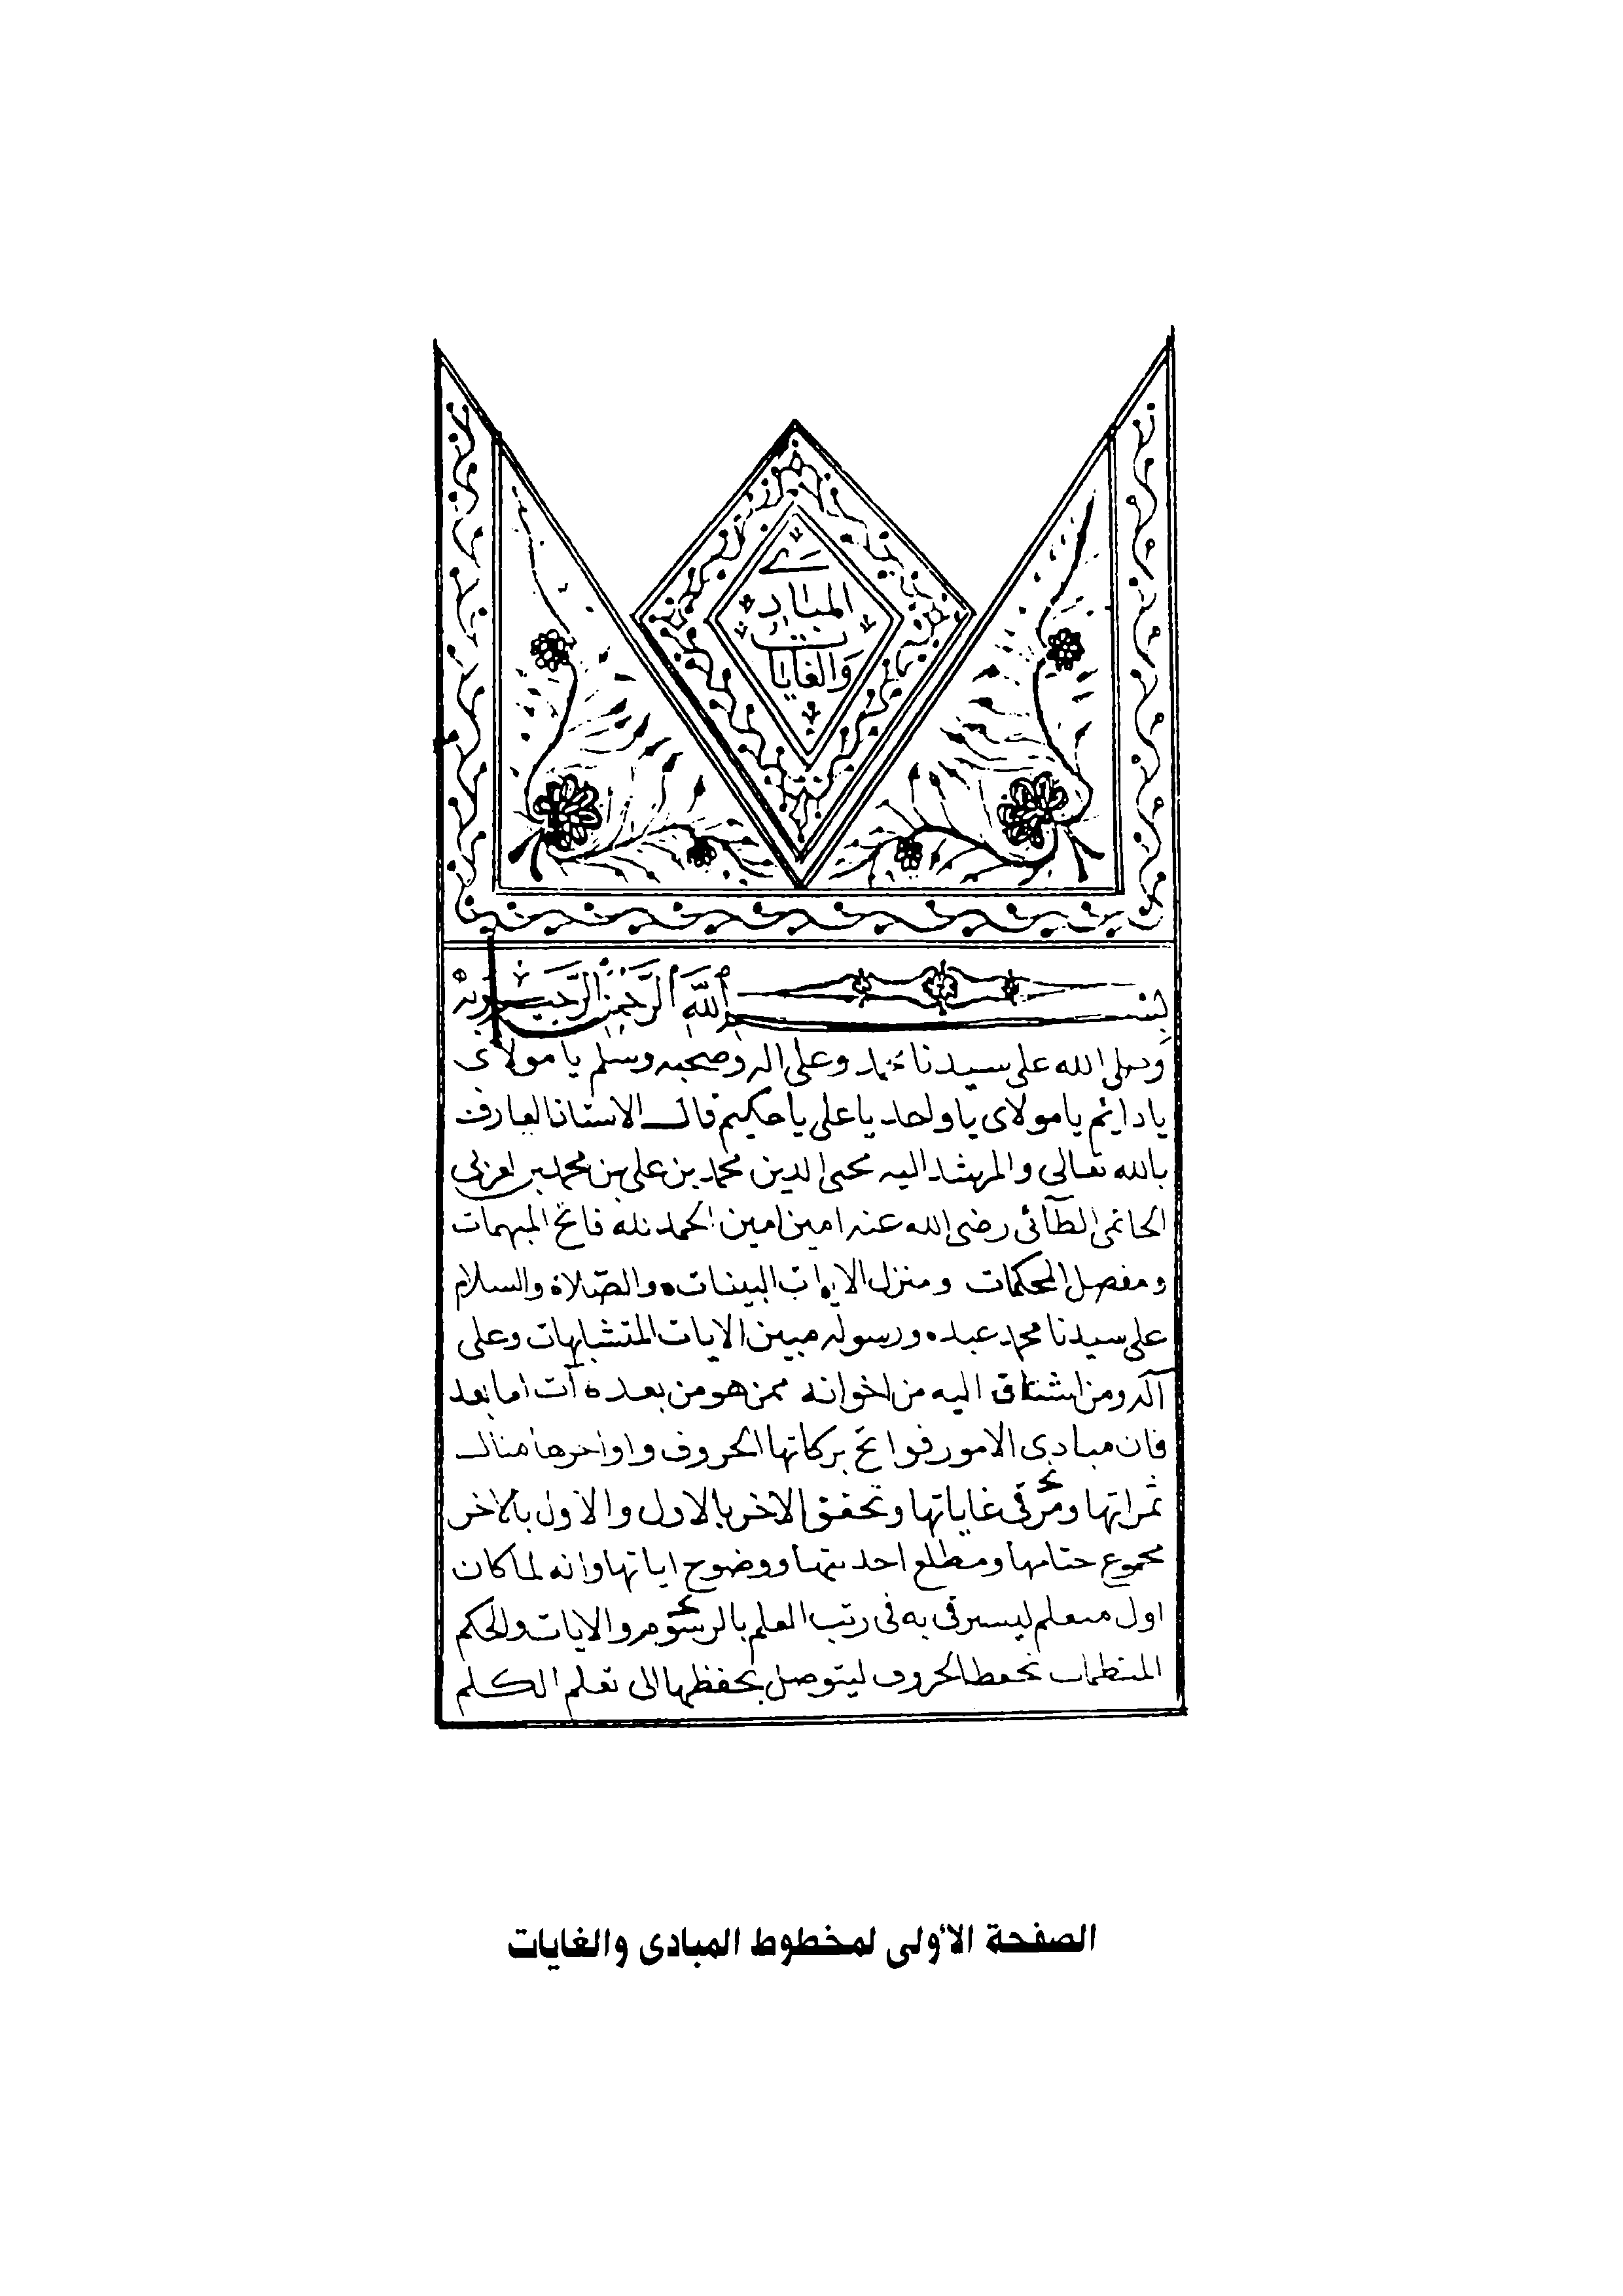 المبادي
والغايات
بسم الله الرحمن الرحيم وبه
وصلى الله على سيدنا محمد وعلى اله وصحبه وسلم يا مولاى
يا دايم يا مولاى يا واحد يا على يا حكيم قال الاستاذ العارف
بالله تعالى والمرشد اليه محيى الدين محمد بن على بن محمد بن العربى
الحاتمى الطآئى رضى الله عنه امين امين الحمد لله فاتح المبهمات
ومفصل المحكمات ومنزل الايات البينات والصلاة والسلام
على سيدنا محمد عبده ورسوله مبين الايات المتشابهات وعلى
آله ومن اشتاق اليه من اخوانه ممن هو من بعده آت اما بعد
فان مبادى الامور فواتح بركاتها الحروف واواخرها منال
ثمراتها وغاياتها وتحقق الاخر بالاول والاول بالاخر
مجموع ختامها ومطلع احديتها ووضوح اياتها وانه لما كان
اول متعلم ليسرقى به فى رتب العلم بالرسوم والايات والحكم
المنتظمات تحفظ الحروف ليتوصل بحفظها الى تعلم الكلم
الصفحة الأولى لمخطوط المبادى والغايات